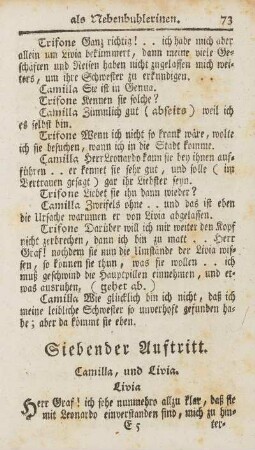 als Nebenbuhlerinen. 73
Trifone Ganz richtig! . . ich habe mich aber
allein um Livia bekümmert, dann meine viele Ge-
schäften und Reisen haben nicht zugelassen mich wei-
ters, um ihre Schwester zu erkundigen. . .
Camilla Sie ist in Genua.
Trifone Kennen sie solche?
Camilla Zimmlich gut (abseits) weil ich
es selbst bin.
Trifone Wenn ich nicht so krank wäre, wolte
ich sie besuchen, wann ich in die Stadt komme.
Camilla Herr Leonardo kann sie bey ihnen auf-
führen . . er kennet sie sehr gut, und solle (im
Vertrauen gesagt) gar ihr Liebster seyn.
Trifone Liebet sie ihn dann wieder?
Camilla Zweifels ohne . . und das ist eben
die Ursache warumen er von Livia abgelassen.
Trifone Darüber will ich mir weiter den Kopf
nicht zerbrechen, dann ich bin zu matt . . Herr
Graf! nachdem sie nun die Umstände der Livia wis-
sen, so können sie thun, was sie wollen . . ich
muß geschwind die Hauptpillen einnehmen, und et-
was ausruhen, (gehet ab.)
Camilla Wie glücklich bin ich nicht, daß ich
meine leibliche Schwester so unverhoft gefunden ha-
be; aber da kommt sie eben.
Siebender Auftritt.
Camilla, und Livia.
Livia
Herr Graf! ich sehe nunmehro allzu klar, daß sie
mit Leonardo einverstanden sind, mich zu hin-
E 5 ter-